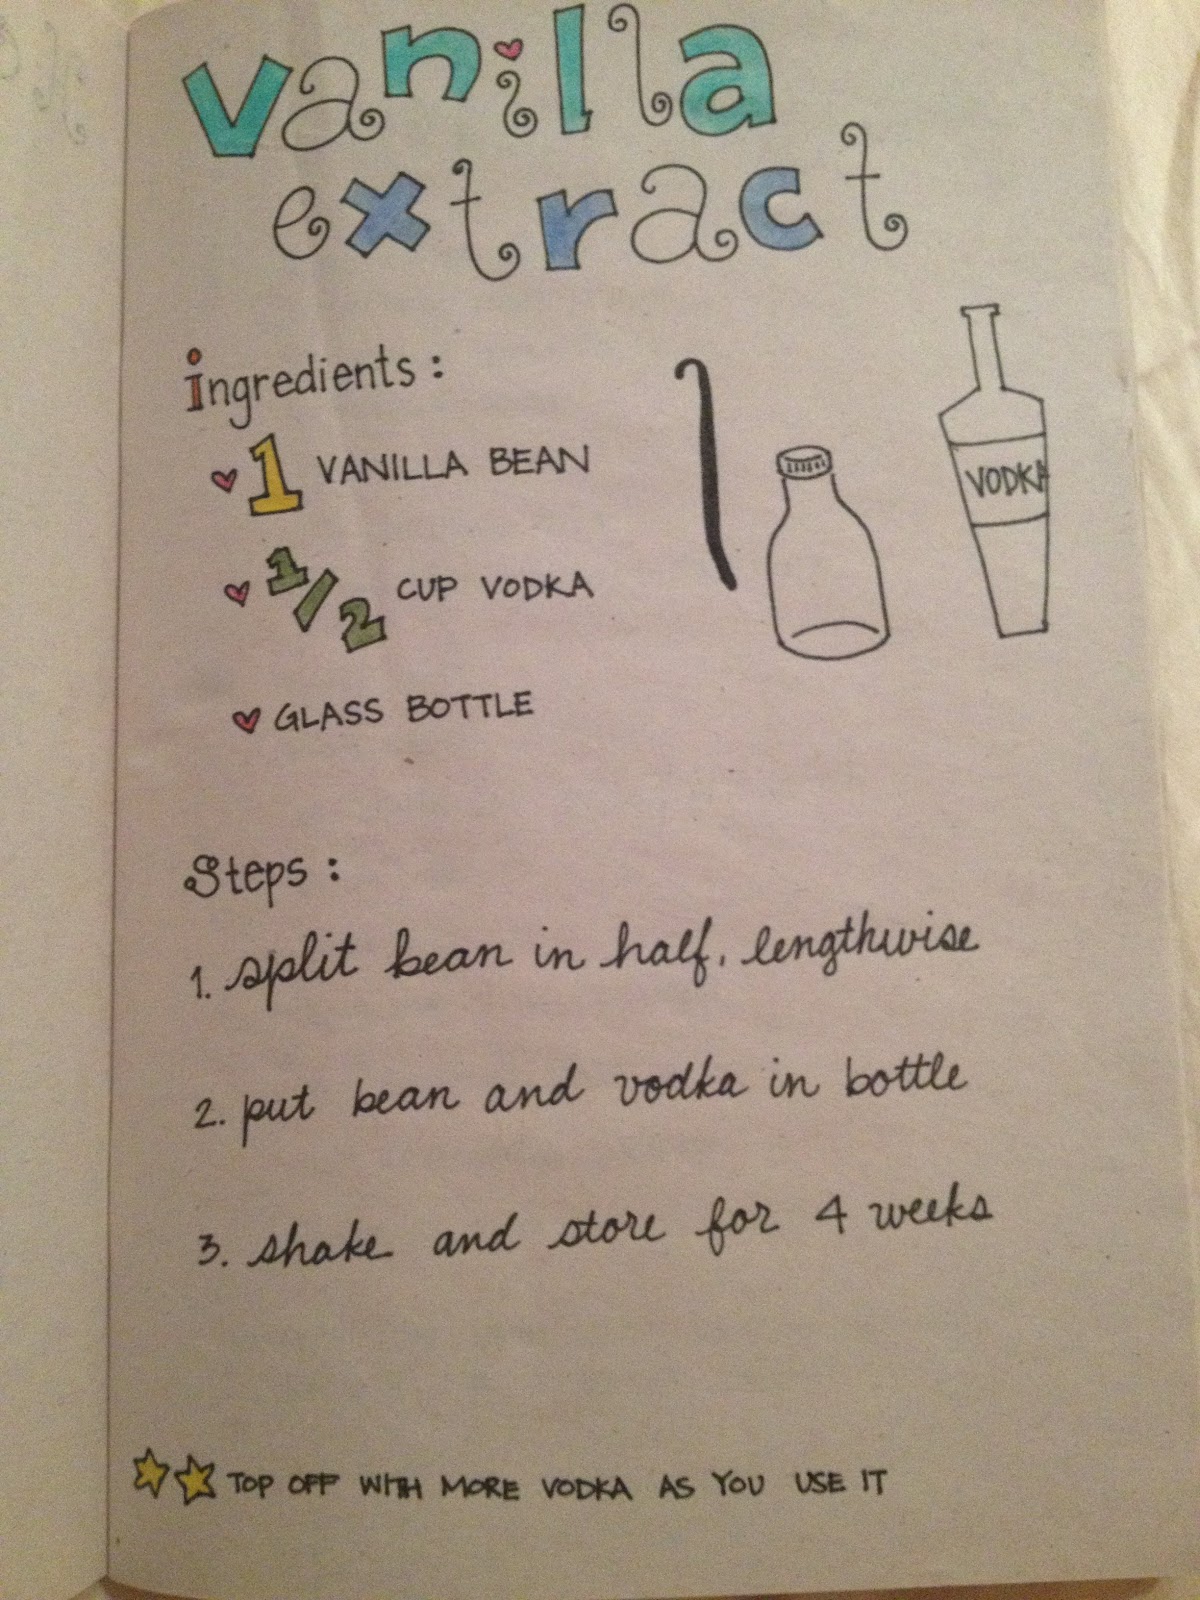 vanilla
extract
ingredients:
1 VANILLA BEAN
1/2 CUP VODKA
GLASS BOTTLE
VODKA
Steps:
1. split bean in half, lengthwise
2. put bean and vodka in bottle
3. shake and store for 4 weeks
TOP OFF WITH MORE VODKA AS YOU USE IT